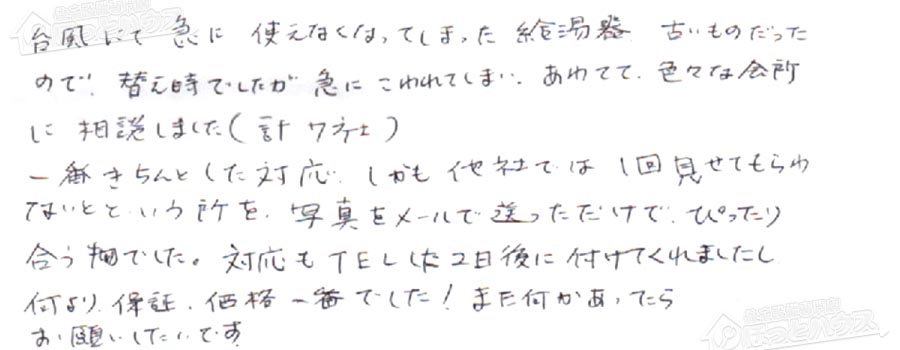 台風にて 急に 使えなくなってしまった 給湯器 古いものだった
ので、替え時でしたが 急に こわれてしまい、あわてて、色々な会所
に 相談しました(計 7社)
一番きちんとした対応、しかも 他社では 1回見せてもらわ
ないとという所を、写真をメールで送っただけで、ぴったり
合う物でした。対応もTELした2日後に付けてくれましたし
何より、保証、価格 一番でした! また何かあったら
お願いしたいです
ほっとハウス